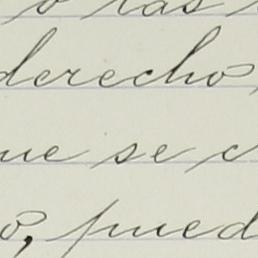 o las
derecho,
ue se c
o, pued